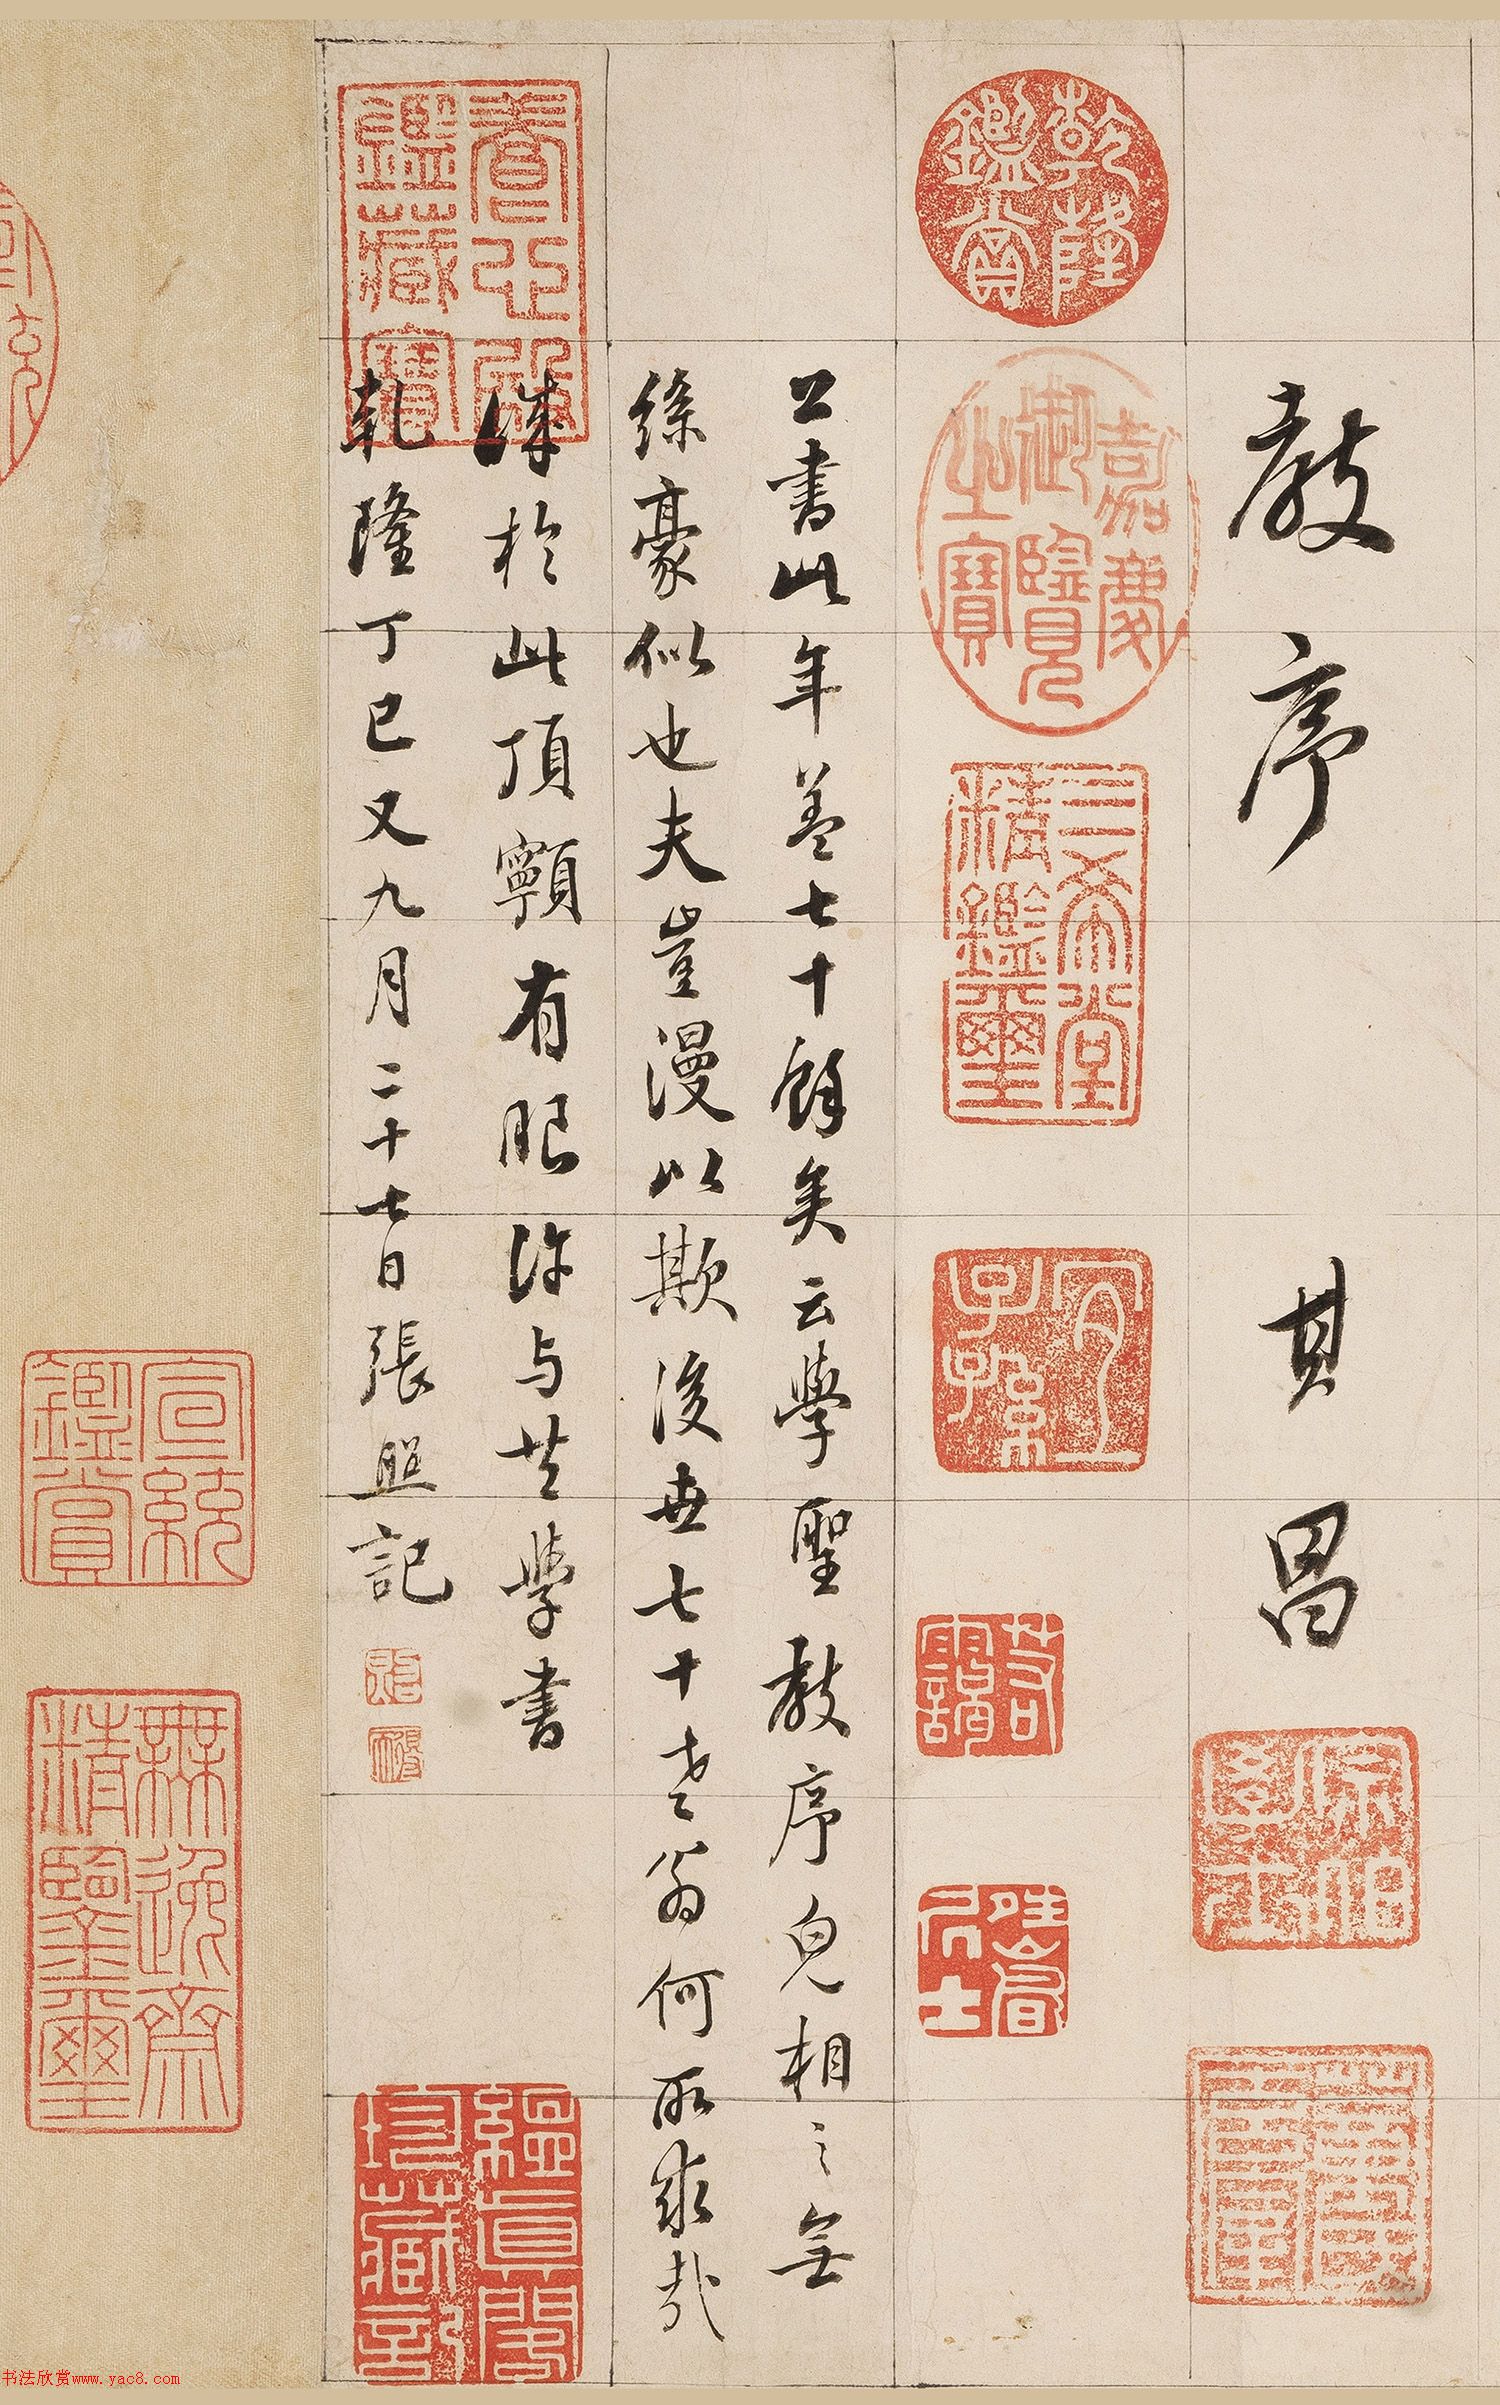 教序 其昌
乾隆鑑賞
嘉慶御覽之寶
三希堂精鑑璽
宜子孫
公書此年蓋七十餘矣云學聖教序皃相之無
絲豪似也夫豈漫以欺後世七十老翁何所求哉
於此頂𩕳有眼许与共學書
養心殿鑑藏寶
乾隆丁巳又九月二十七日張照記
宣統鑑賞
無逸齋精鑒璽
书法欣赏www.yac8.com